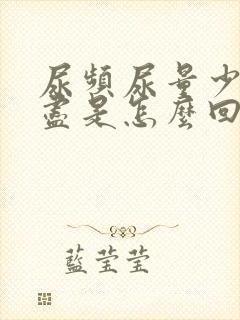 尿頻尿量少
盡是怎麼回
藍莹莹